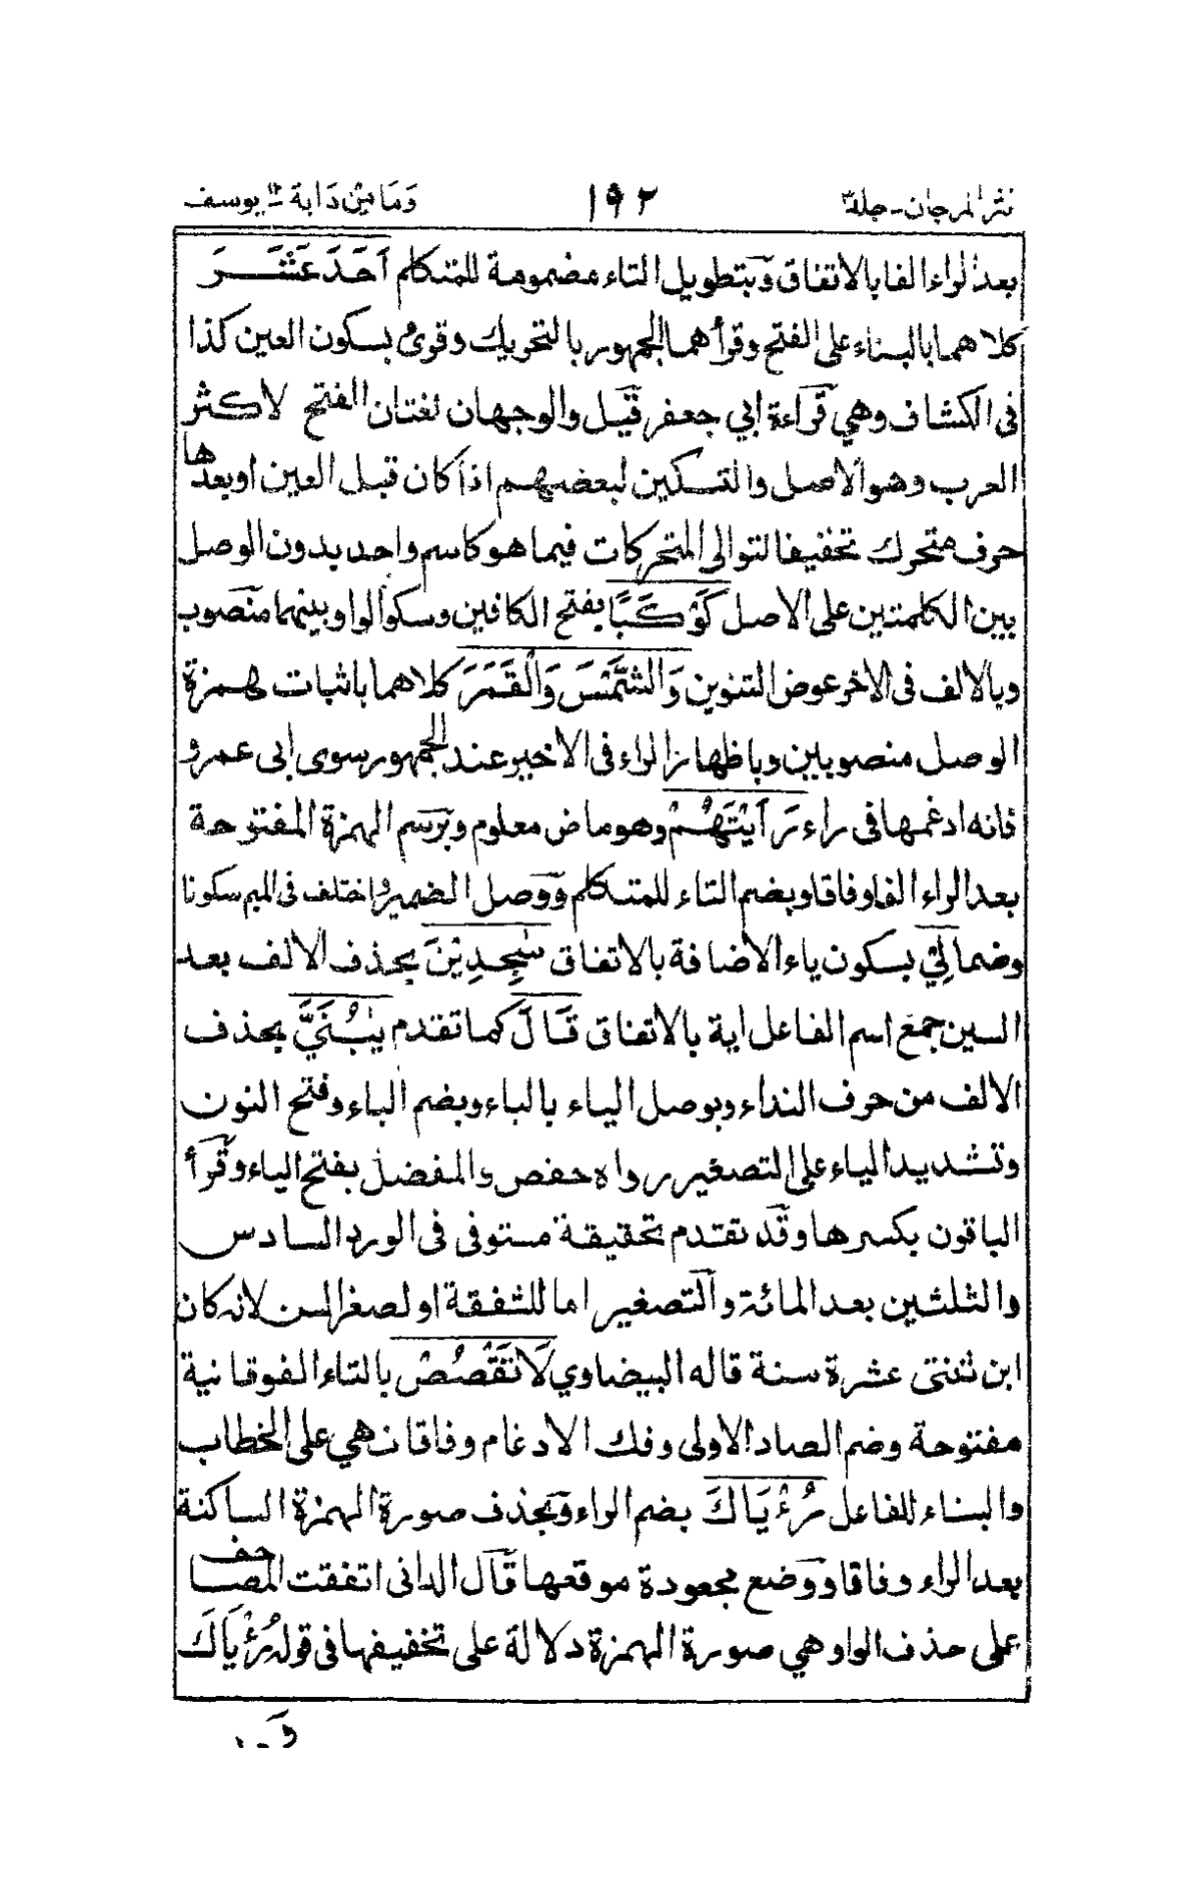 نثر المرجان - جلد ٣ ١٩٢ وَمَا مِنْ دَابة ١٢ يوسف
بعد الراء الفا بالاتفاق وَبتطويل التاء مضمومة للمتكلم اَحَدَ عَشَرَ
كلاهما بالبناء على الفتح وقرأهما الجمهور بالتحريك وقرئ بسكون العين كذا
فى الكشاف وهي قراءة ابي جعفر قيل والوجهان لغتان الفتح لاكثر
العرب وهو الاصل والتسكين لبعضهم اذا كان قبل العين او بعدها
حرف متحرك تخفيفا لتوالى المتحركات فيما هو كاسم واحد بدون الوصل
بين الكلمتين على الاصل كَوْكَبًا بفتح الكافين وسكو الواو بينهما منصوب
وبالالف فى الاخر عوض التنوين وَالشَّمْسَ وَالْقَمَرَ كلاهما باثبات همزة
الوصل منصوبين وباظهار الراء فى الاخير عند الجمهور سوى ابى عمرو
فانه ادغمها فى راء رَاَيْتَهُمْ وهو ماض معلوم وبرسم الهمزة المفتوحة
بعد الراء الفا وفاقا وبضم التاء للمتكلم ووصل الضمير واختلف فى الميم سكونا
وضما لِيْ بسكون ياء الاضافة بالاتفاق سٰجِدِيْنَ بحذف الالف بعد
السين جمع اسم الفاعل اية بالاتفاق قَالَ كما تقدم يٰبُنَيَّ بحذف
الالف من حرف النداء وبوصل الياء بالباء وبضم الباء وفتح النون
وتشديد الياء على التصغير رواه حفص والمفضل بفتح الياء وقرأ
الباقون بكسرها وقد تقدم تحقيقة مستوفى فى الورد السادس
والثلثين بعد المائة والتصغير اما للشفقة او لصغر السن لانه كان
ابن ثنتى عشرة سنة قاله البيضاوي لَا تَقْصُصْ بالتاء الفوقانية
مفتوحة وضم الصاد الاولى وفك الادغام وفاقا نهي على الخطاب
والبناء للفاعل رُءْيَاكَ بضم الراء وبحذف صورة الهمزة الساكنة
بعد الراء وفاقا ووضع مجعودة موقعها قال الدانى اتفقت المصاحف
على حذف الواو هي صورة الهمزة دلالة على تخفيفها فى قوله رُءْيَاكَ